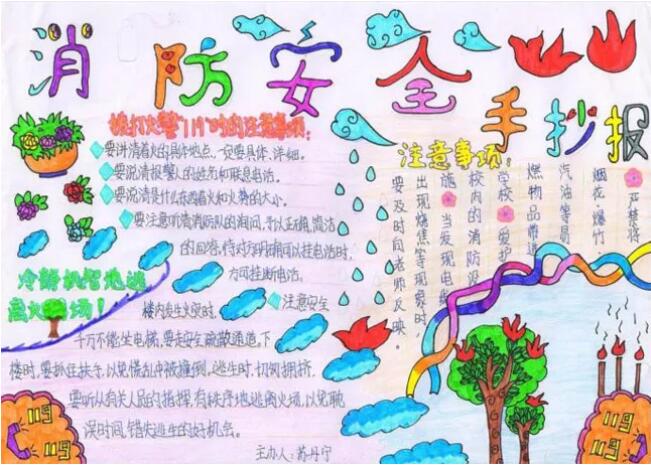 消防安全
手抄报
拨打火警119时的注意事项：
要讲清着火的具体地点，一定要具体、详细。
要说清报警人的姓名和联系电话。
要说清是什么东西着火和火势的大小。
要注意听清消防队的询问，予以正确，简洁
的回答，待对方明确可以挂电话时，
方可挂断电话。
冷静机智地逃
离火现场！
注意安全
楼内发生火灾时，
千万不能坐电梯，要走安全疏散通道。下
楼时，要抓住扶手，以免慌乱中被撞倒，逃生时，切勿拥挤，
要听从有关人员的指挥，有秩序地逃离火场，以免耽
误时间，错失逃生的好机会。
主办人：苏丹宁
注意事项：
严禁将
烟花、爆竹
汽油等易
燃物品带进
学校
爱护
校内的消防设
施
当发现电器
出现烧焦等现象时，
要及时向老师反映。
119
119
119
119